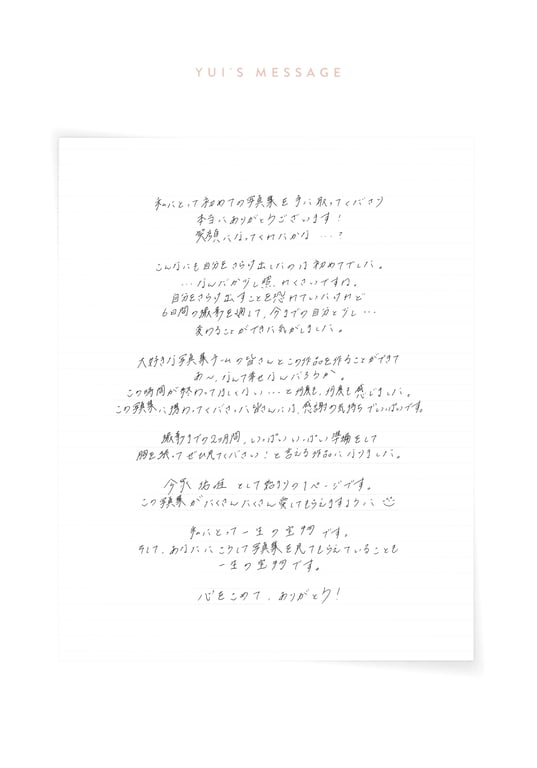 YUI'S MESSAGE
私にとって初めての写真集を手に取ってくださり
本当にありがとうございます!
笑顔になってくれたかな…?
こんなにも自分をさらけ出したのは初めてでした。
…なんだか少し照れくさいですね。
自分をさらけ出すことを恐れていたけれど
6日間の撮影を通して、今までの自分と少し…
変わることができた気がしました。
大好きな写真集チームの皆さんとこの作品を作ることができて
あ〜、なんて幸せなんだろうか。
この時間が終わってほしくない…と何度も、何度も感じました。
この写真集に携わってくださった皆さんには、感謝の気持ちでいっぱいです。
撮影までの2ヶ月間、いっぱいいっぱい準備をして
胸を張ってぜひ見てください!と言える作品になりました。
として始まりの1ページです。
この写真集がたくさんたくさん愛してもらえますように
私にとって一生の宝物です。
そして、あなたにこうして写真集を見てもらえていることも
一生の宝物です。
心をこめて、ありがとう!